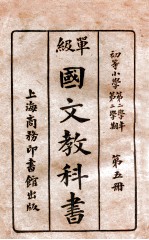 初等小學
第二學年
第三學期
第五冊
單級
國文教科書
上海商務印書館出版